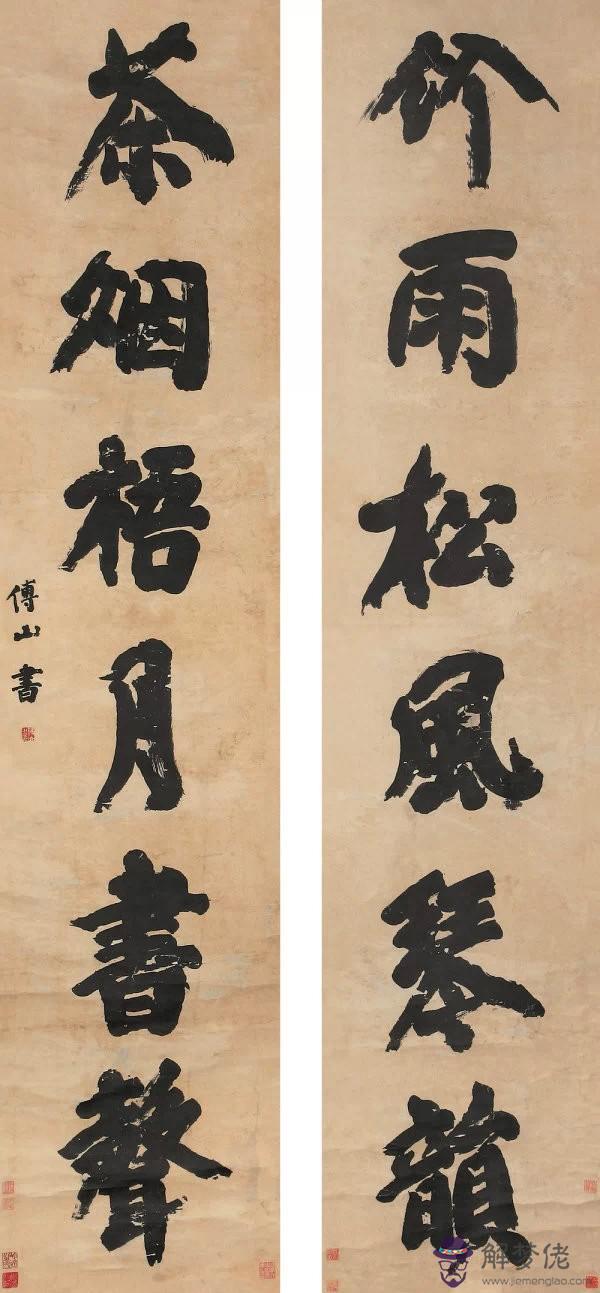 竹雨松風琴韻
茶烟梧月書聲
傅山書
解梦佬
www.jiemenglao.com